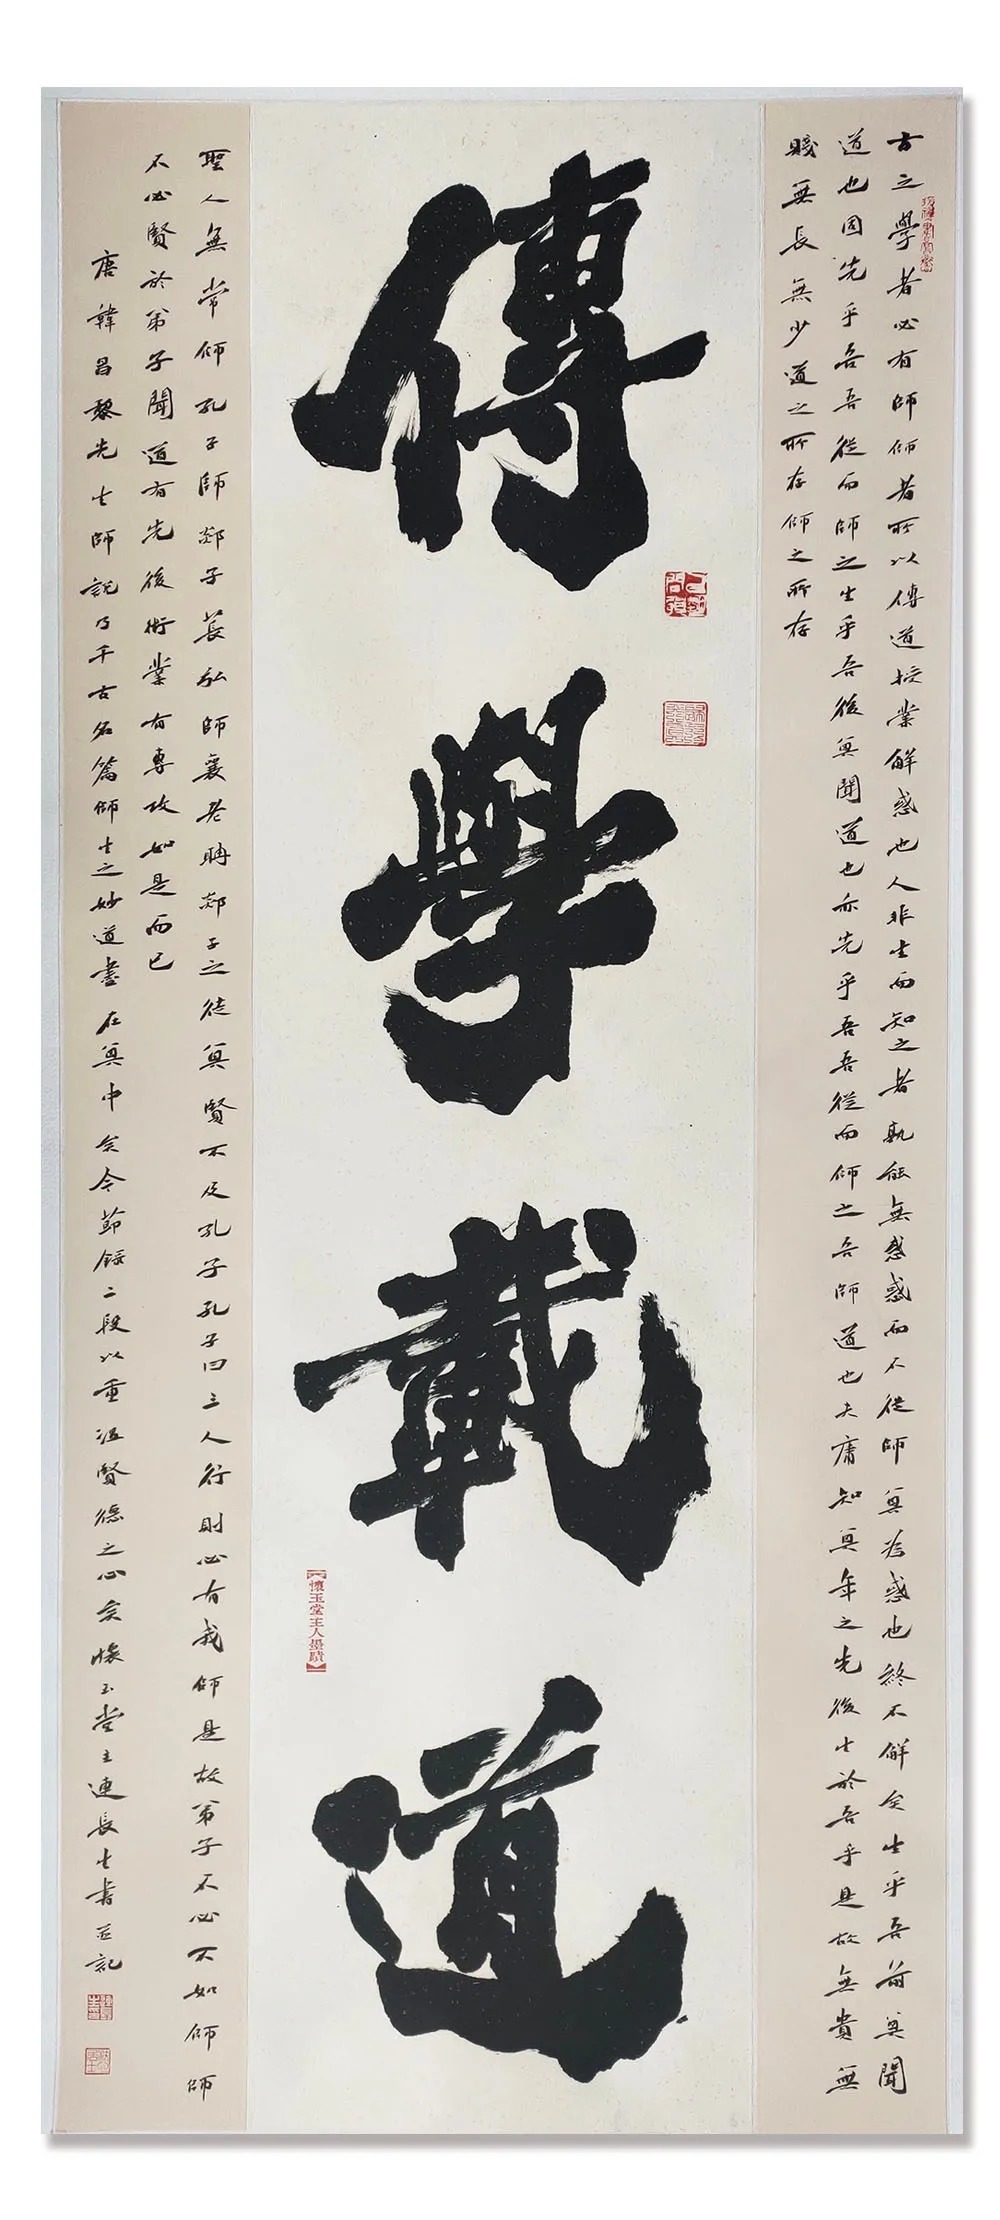 傳學載道
古之學者必有師師者所以傳道授業解惑也人非生而知之者孰能無惑惑而不從師其為惑也終不解矣生乎吾前其聞
道也固先乎吾吾從而師之生乎吾後其聞道也亦先乎吾吾從而師之吾師道也夫庸知其年之先後生於吾乎是故無貴無
賤無長無少道之所存師之所存
懷玉堂主人墨蹟
聖人無常師孔子師郯子萇弘師襄老聃郯子之徒其賢不及孔子孔子曰三人行則必有我師是故弟子不必不如師師
不必賢於弟子聞道有先後術業有專攻如是而已
唐韓昌黎先生師說乃千古名篇師生之妙道盡在其中矣今節錄二段以重溫賢德之心矣懷玉堂主連長生書並記